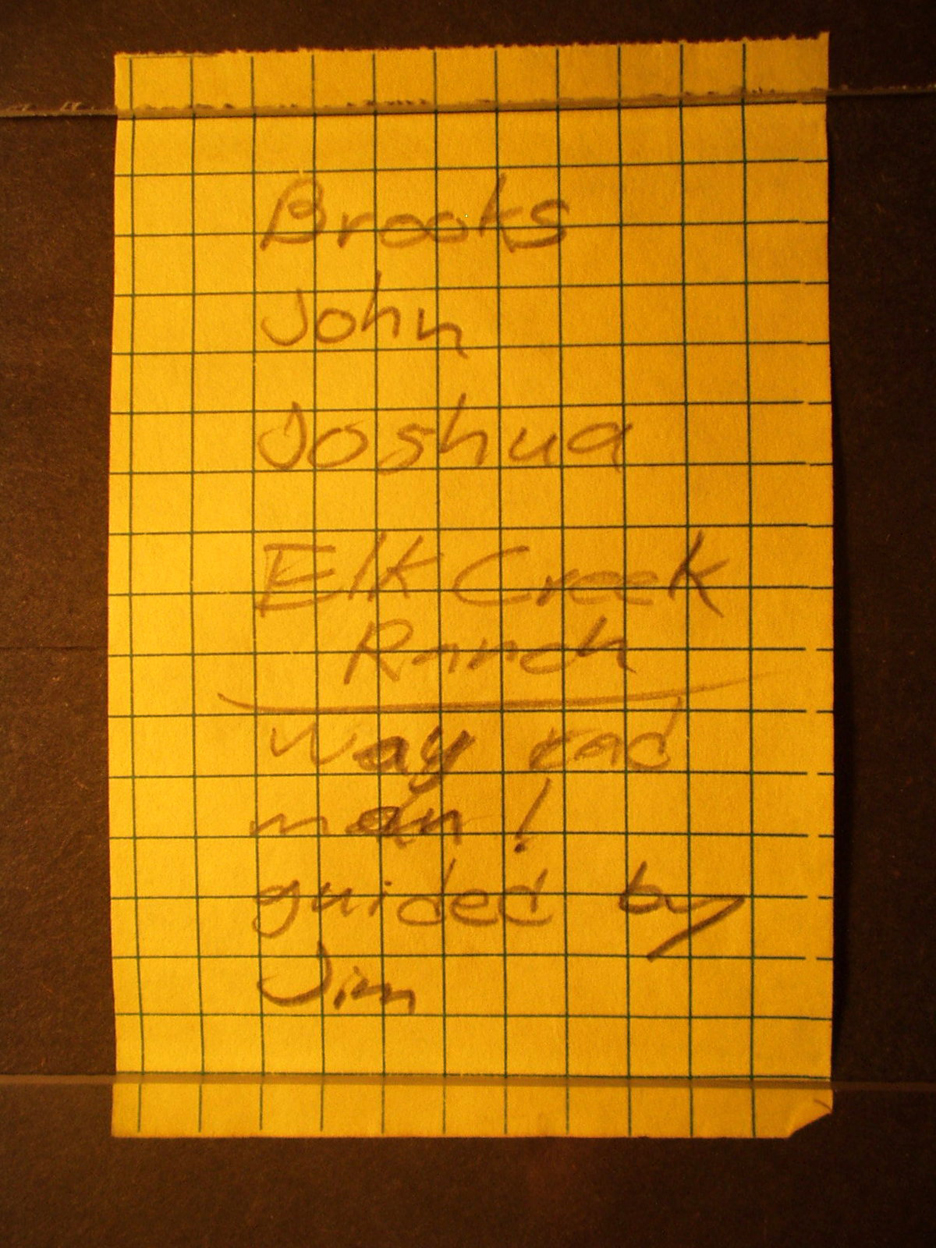 Brooks
John
Joshua
Elk Creek
Ranch
way rad
man!
guided by
Jim